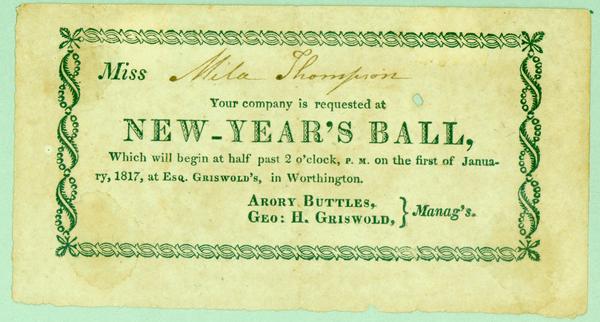 Miss Mila Thompson
Your company is requested at
NEW-YEAR'S BALL,
Which will begin at half past 2 o'clock, P. M. on the first of Janua-
ry, 1817, at Esq. Griswold's, in Worthington.
Arory Buttles,
Geo: H. Griswold, } Manag's.